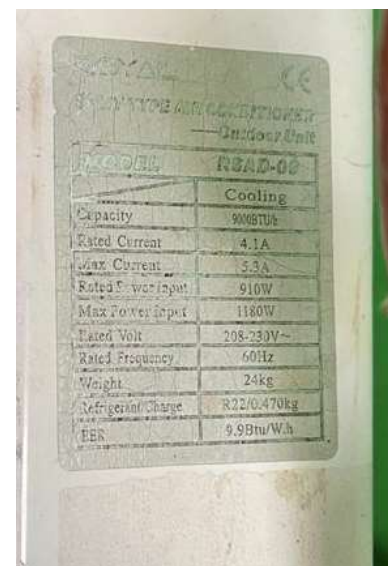 ROYAL CE
SPLIT TYPE AIR CONDITIONER
Outdoor Unit
MODEL RSAD-09
Cooling
Capacity 9000BTU/h
Rated Current 4.1A
Max Current 5.3A
Rated Power input 910W
Max Power Input 1180W
Rated Volt 208-230V~
Rated Frequency 60Hz
Weight 24kg
Refrigerant Charge R22/0.470kg
EER 9.9Btu/W.h